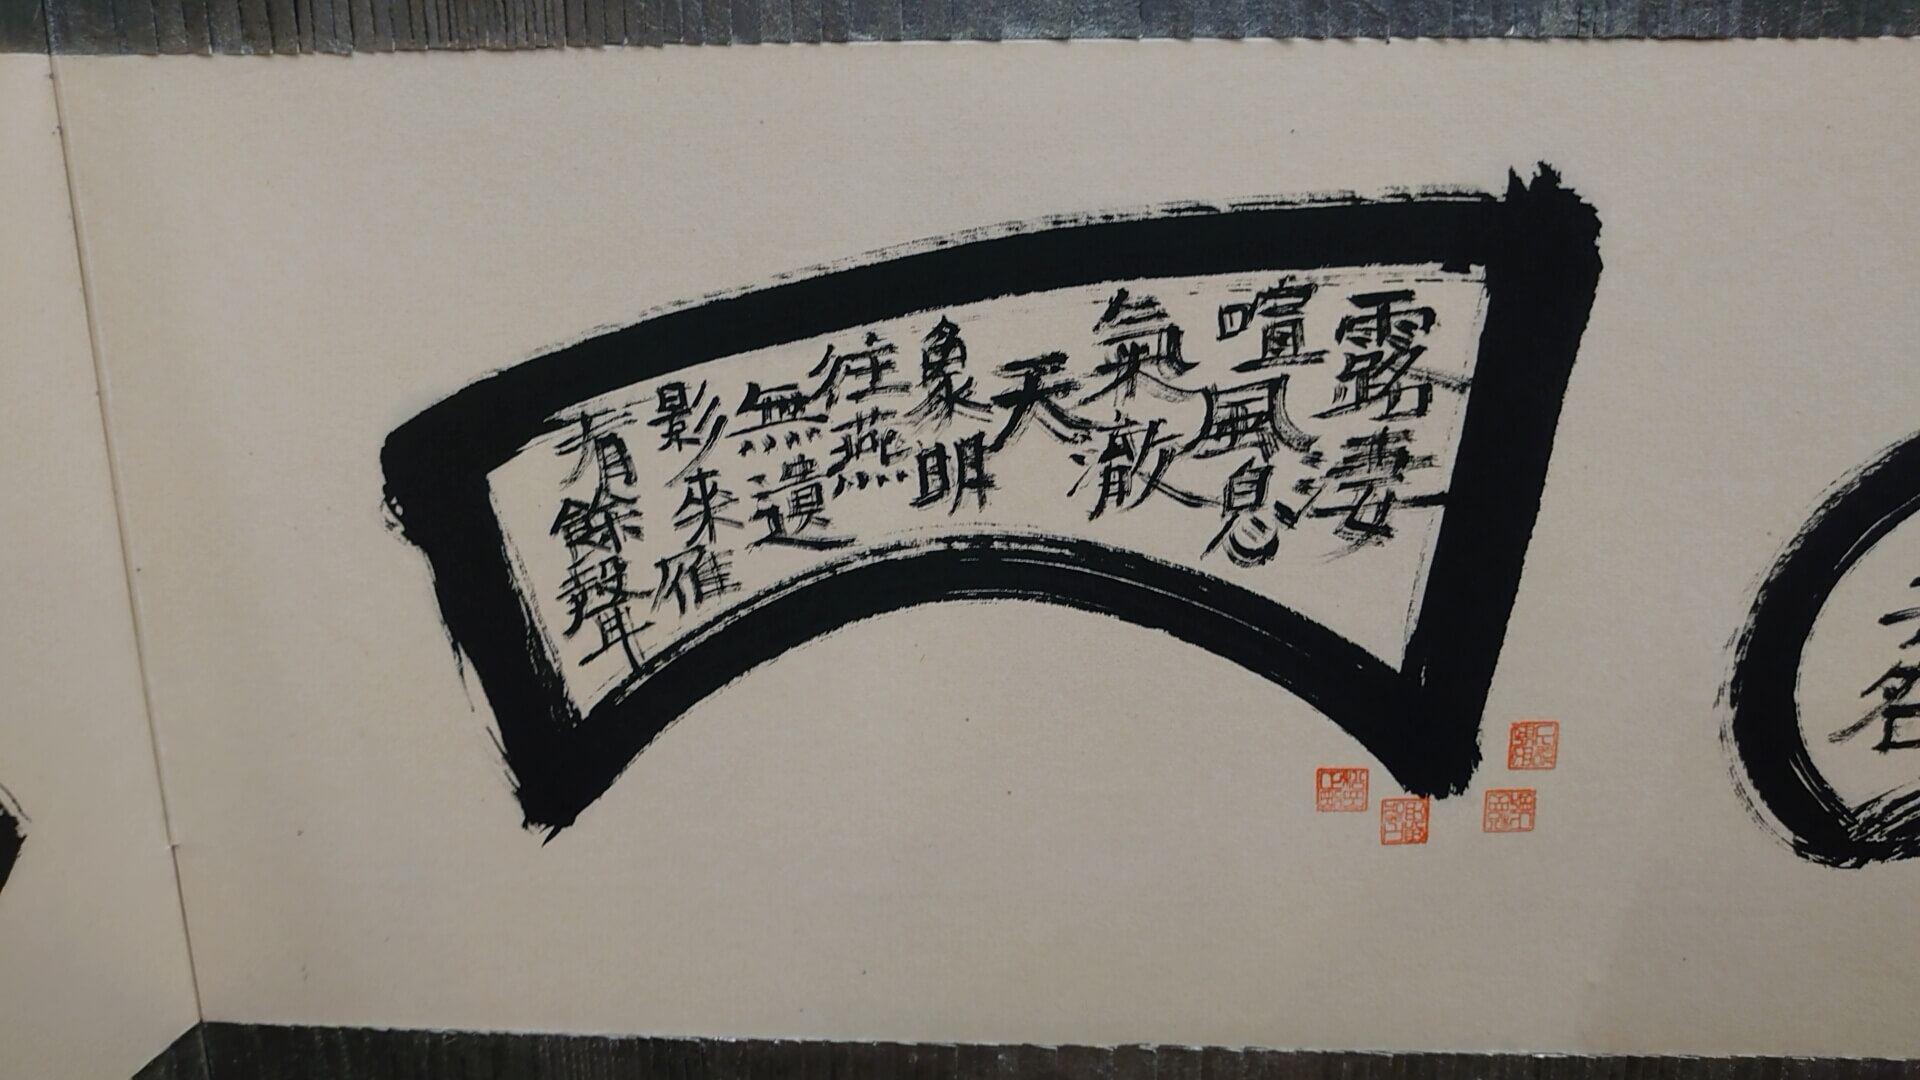 露淒
喧風息
氣澈
天
象明
往燕
無遺
影來雁
有餘聲